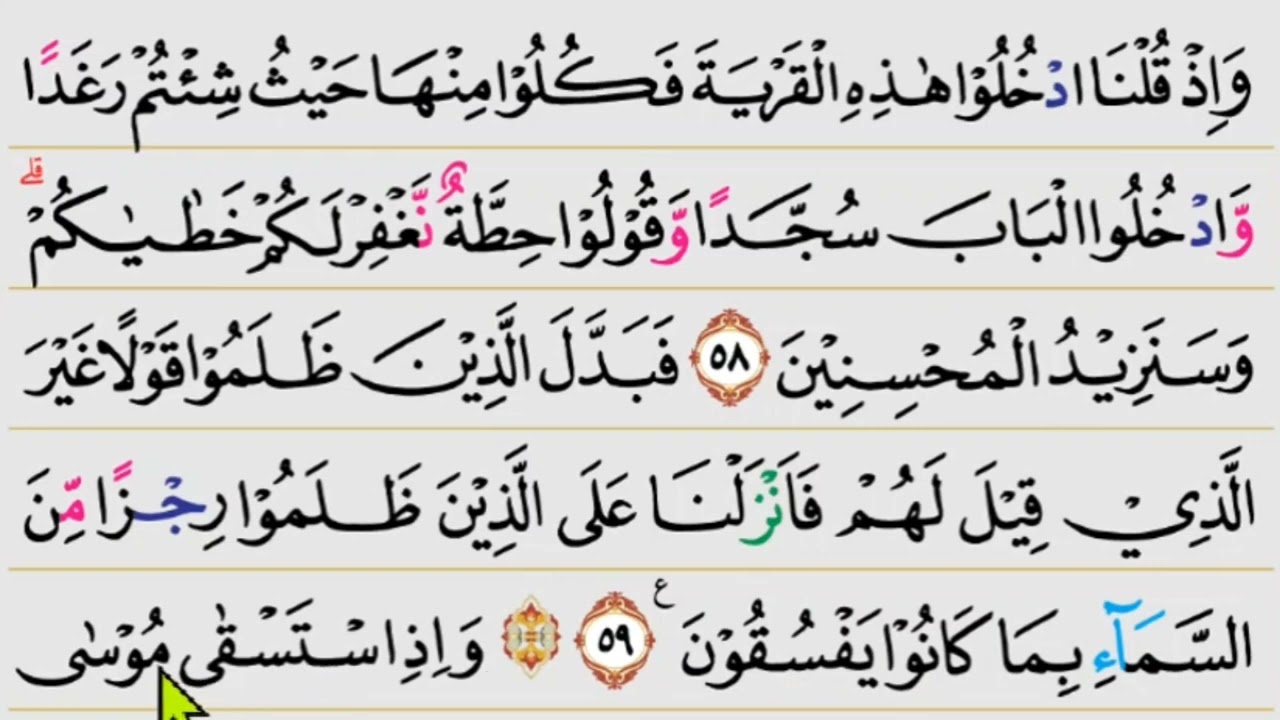 وَاِذْ قُلْنَا ادْخُلُوْا هٰذِهِ الْقَرْيَةَ فَكُلُوْا مِنْهَا حَيْثُ شِئْتُمْ رَغَدًا
وَّادْخُلُوا الْبَابَ سُجَّدًا وَّقُوْلُوْا حِطَّةٌ نَّغْفِرْ لَكُمْ خَطٰيٰكُمْ ۗ
وَسَنَزِيْدُ الْمُحْسِنِيْنَ ٥٨ فَبَدَّلَ الَّذِيْنَ ظَلَمُوْا قَوْلًا غَيْرَ
الَّذِيْ قِيْلَ لَهُمْ فَاَنْزَلْنَا عَلَى الَّذِيْنَ ظَلَمُوْا رِجْزًا مِّنَ
السَّمَاۤءِ بِمَا كَانُوْا يَفْسُقُوْنَ ع ٥٩ وَاِذِ اسْتَسْقٰى مُوْسٰى